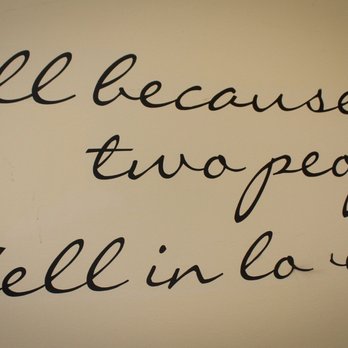 ll because
two peop
fell in lo